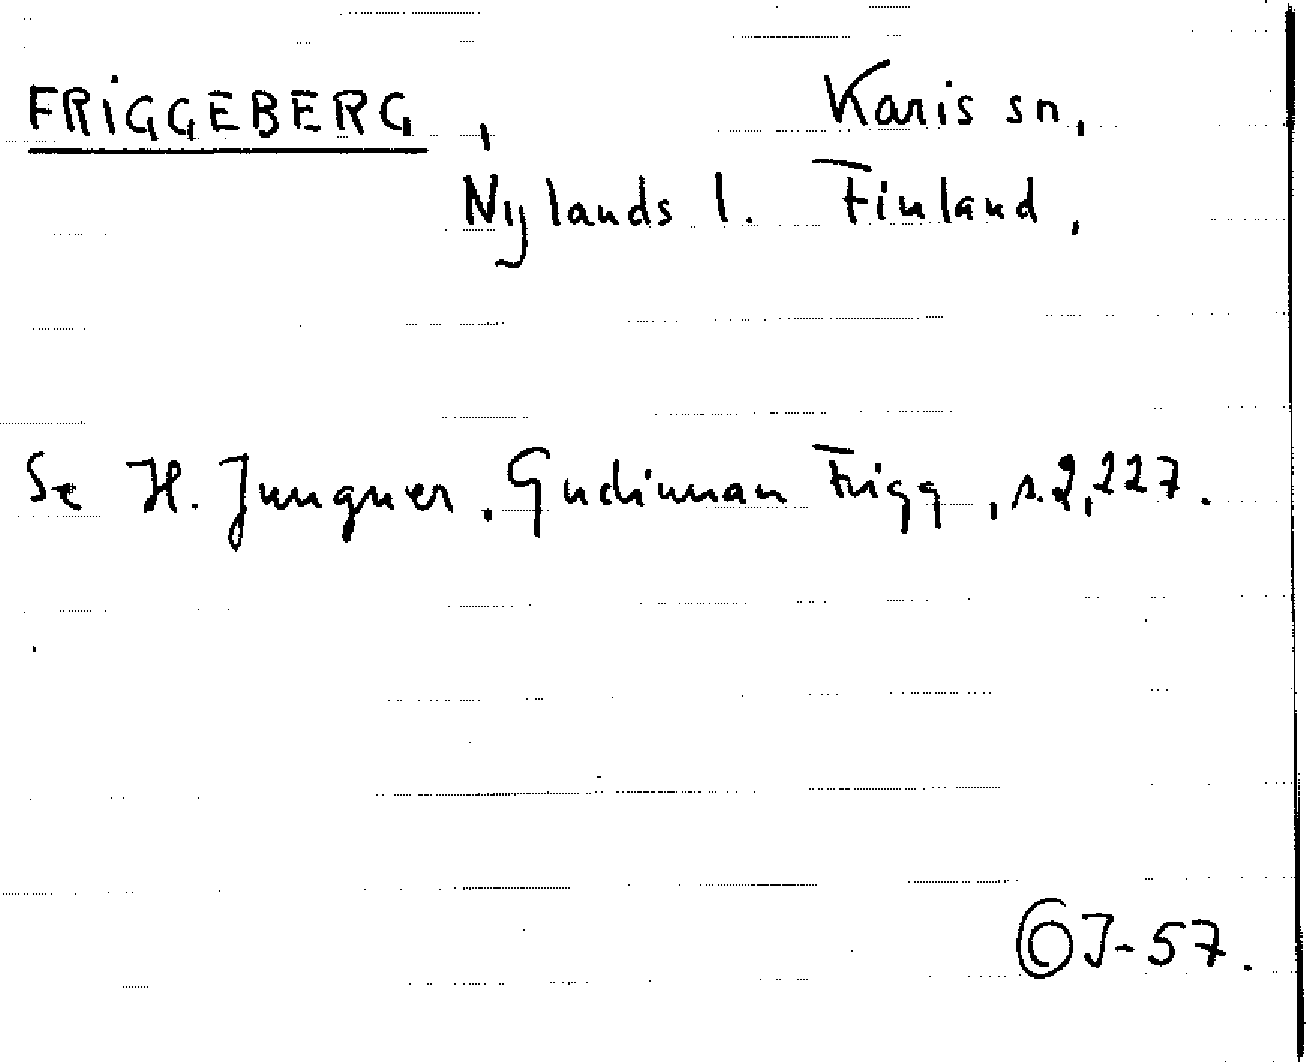 FRIGGEBERG, Karis sn,
Nylands l. Finland,
Se H. Jungner, Gudinnan Frigg, s. 2, 227.
OJ-57.